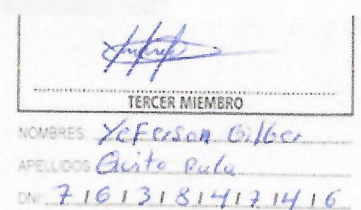 TERCER MIEMBRO
NOMBRES: Yeferson Gilber
APELLIDOS Quito
DNI: 76138474 16